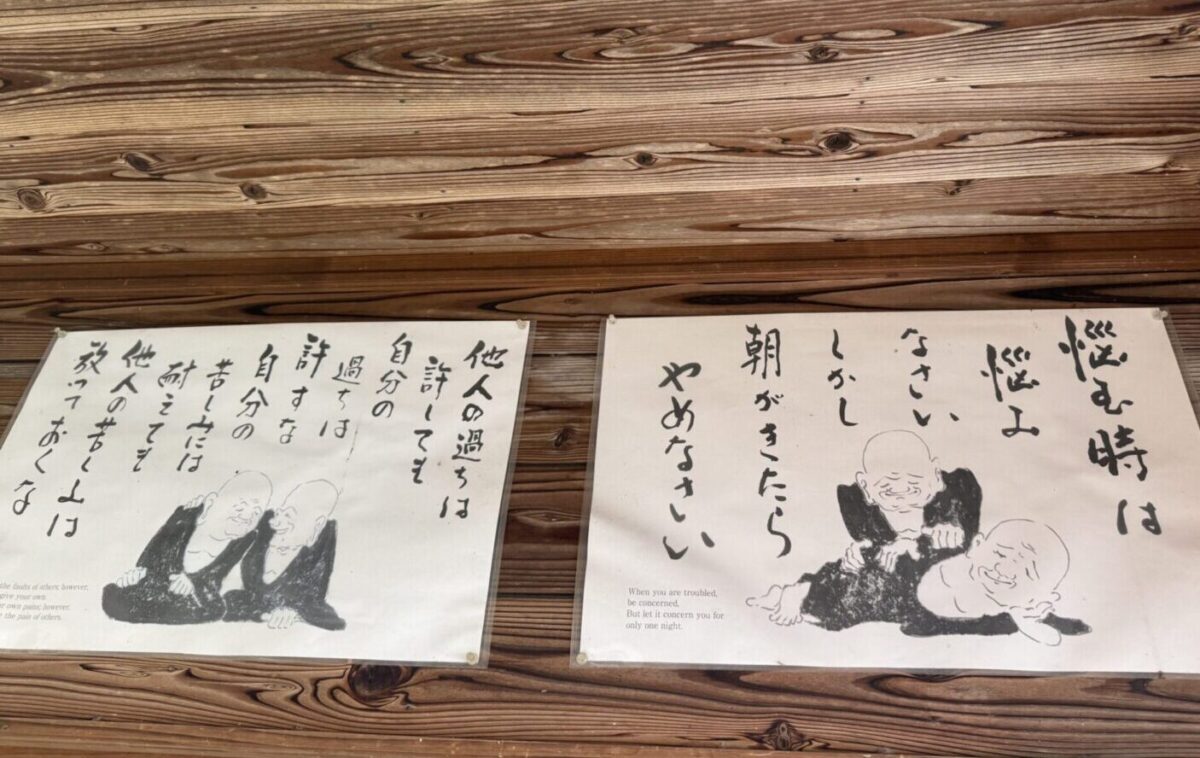 悩む時は
悩み
なさい
しかし
朝がきたら
やめなさい
When you are troubled,
be concerned.
But let it concern you for
only one night.
他人の過ちは
許しても
自分の
過ちは
許すな
自分の
苦しみには
耐えても
他人の苦しみは
放っておくな
the faults of others; however,
give your own
own pains; however,
the pain of others.